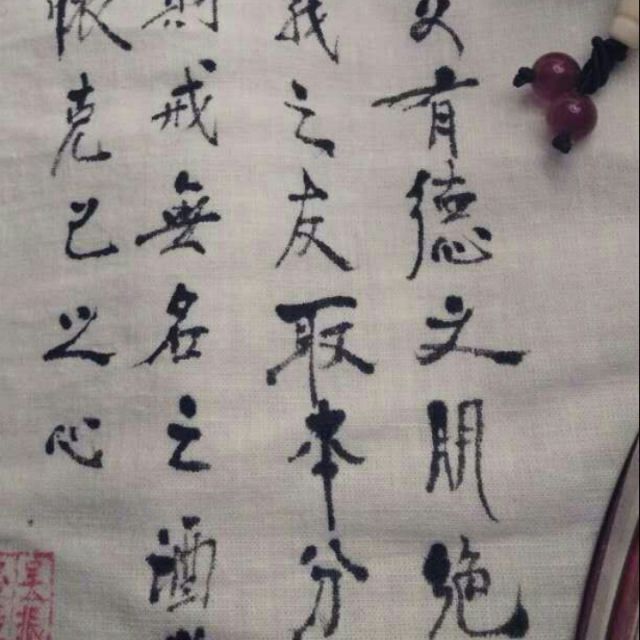 交有德之朋绝
義之友取本分
財戒無名之酒
懷克己之心